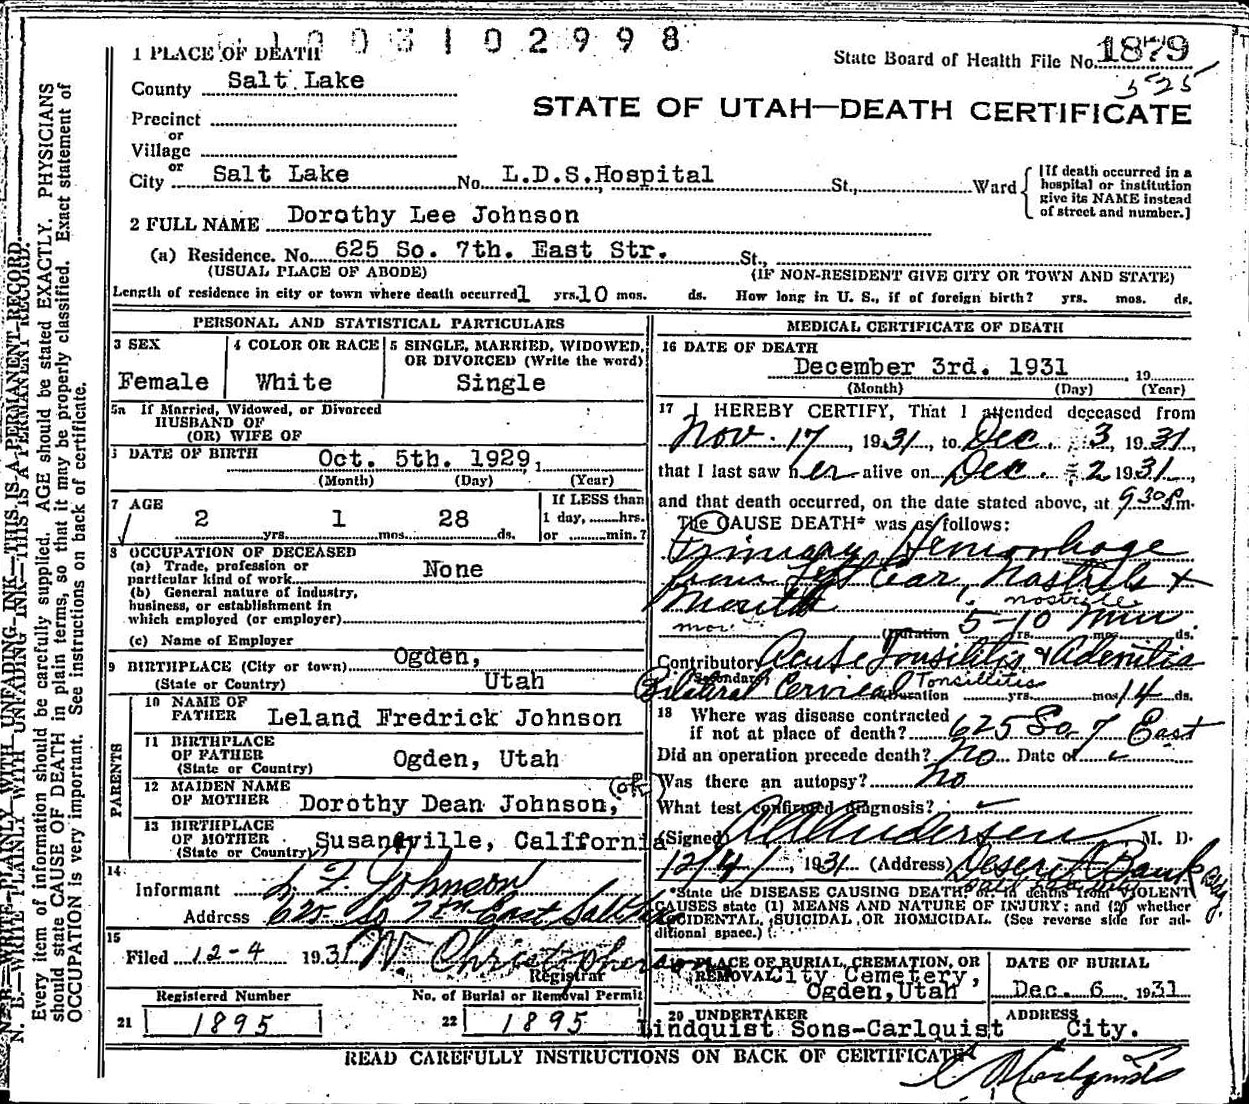 1003102998
1 PLACE OF DEATH
State Board of Health File No. 1879
525
County Salt Lake
STATE OF UTAH—DEATH CERTIFICATE
Precinct
or
Village
or
City Salt Lake No. L.D.S.Hospital St., Ward
[If death occurred in a
hospital or institution
give its NAME instead
of street and number.]
2 FULL NAME Dorothy Lee Johnson
(a) Residence. No. 625 So. 7th. East Str. St.,
(USUAL PLACE OF ABODE) (IF NON-RESIDENT GIVE CITY OR TOWN AND STATE)
Length of residence in city or town where death occurred 1 yrs. 10 mos. ds. How long in U. S., if of foreign birth? yrs. mos. ds.
PERSONAL AND STATISTICAL PARTICULARS
3 SEX
Female
4 COLOR OR RACE
White
5 SINGLE, MARRIED, WIDOWED,
OR DIVORCED (Write the word)
Single
5a If Married, Widowed, or Divorced
HUSBAND OF
(OR) WIFE OF
DATE OF BIRTH Oct. 5th. 1929,
(Month) (Day) (Year)
7 AGE
2 yrs. 1 mos. 28 ds.
If LESS than
1 day, hrs.
or min.?
8 OCCUPATION OF DECEASED
(a) Trade, profession or
particular kind of work None
(b) General nature of industry,
business, or establishment in
which employed (or employer)
(c) Name of Employer
9 BIRTHPLACE (City or town) Ogden,
(State or Country) Utah
PARENTS
10 NAME OF
FATHER Leland Fredrick Johnson
11 BIRTHPLACE
OF FATHER
(State or Country) Ogden, Utah
12 MAIDEN NAME
OF MOTHER Dorothy Dean Johnson, (ok)
13 BIRTHPLACE
OF MOTHER
(State or Country) Susanville, California
14
Informant L F Johnson
Address 625 So 7th East Salt Lake
15
Filed 12-4 1931 W. Christopherson
Registrar
Registered Number
21 1895
No. of Burial or Removal Permit
22 1895
MEDICAL CERTIFICATE OF DEATH
16 DATE OF DEATH
December 3rd. 1931 , 19
(Month) (Day) (Year)
17 I HEREBY CERTIFY, That I attended deceased from
Nov. 17, 1931, to Dec. 3, 1931,
that I last saw her alive on Dec. 2 1931,
and that death occurred, on the date stated above, at 9:30 P.m.
The CAUSE DEATH* was as follows:
Primary Hemorrhage
from Left Ear, Nostrils +
Mouth nostrils
(Duration 5-10 min. yrs. mos. ds.
Contributory Acute Tonsilitis & Adenitis
Secondary Tonsillitis
Bilateral Cervical Duration yrs. mos. 14 ds.
18 Where was disease contracted
if not at place of death? 625 So 7 East
Did an operation precede death? No Date of
Was there an autopsy? No
What test confirmed diagnosis?
(Signed) Andersen M. D.
12/4/, 1931 (Address) Deseret Bank Bldg.
*State the DISEASE CAUSING DEATH; in deaths from VIOLENT
CAUSES state (1) MEANS AND NATURE OF INJURY; and (2) whether
ACCIDENTAL, SUICIDAL OR HOMICIDAL. (See reverse side for ad-
ditional space.)
19 PLACE OF BURIAL, CREMATION, OR
REMOVAL City Cemetery,
Ogden,Utah
DATE OF BURIAL
Dec. 6 1931
20 UNDERTAKER
Lindquist Sons-Carlquist
ADDRESS
City.
READ CAREFULLY INSTRUCTIONS ON BACK OF CERTIFICATE
N. B.—WRITE PLAINLY WITH UNFADING INK—THIS IS A PERMANENT RECORD.
Every item of information should be carefully supplied. AGE should be stated EXACTLY. PHYSICIANS
should state CAUSE OF DEATH in plain terms, so that it may be properly classified. Exact statement of
OCCUPATION is very important. See instructions on back of certificate.